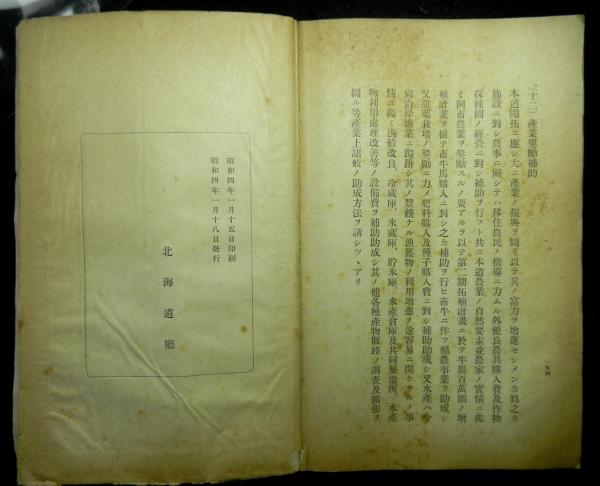 (十二)産業奬勵補助
本道開拓ニ應シ大ニ產業ノ振興ヲ圖リ以テ其ノ富力ヲ增進セシメンカ爲之カ
施設ニ對シ農事ニ關シテハ移住農民ノ指導ニ力ムル外優良農具購入費及作物
採種圃ノ經營ニ對シ補助ヲ行フト共ニ本道農業ノ自然要素並農家ノ實情ニ鑑
ミ飼畜農業ヲ奬勵スルノ要アルヲ以テ第二期拓殖計畫ニ於テ牛馬百萬頭ノ增
殖計畫ヲ樹テ畜牛馬購入ニ對シ之カ補助ヲ行ヒ畜牛ニ伴フ酪農事業ヲ助成シ
又甜菜栽培ノ奬勵ニ力メ肥料購入及種子購入費ニ對シ補助助成シ又水產ハ今
尙沿岸漁業ニ跼蹐シ其ノ豐饒ナル漁獲物ノ利用增進ノ途容易ニ開ケサルノ事
情ニ鑑ミ漁船改良、冷藏庫、氷藏庫、貯氷庫、水產倉庫及共同製造所、水產
物利用處理改善等ノ設備費ヲ補助助成シ其ノ他各種產物販路ノ調査及擴張ヲ
圖ル等產業上諸般ノ助成方法ヲ講シツヽアリ
一五四
昭和四年一月十五日印刷
昭和四年一月十八日發行
北海道廳